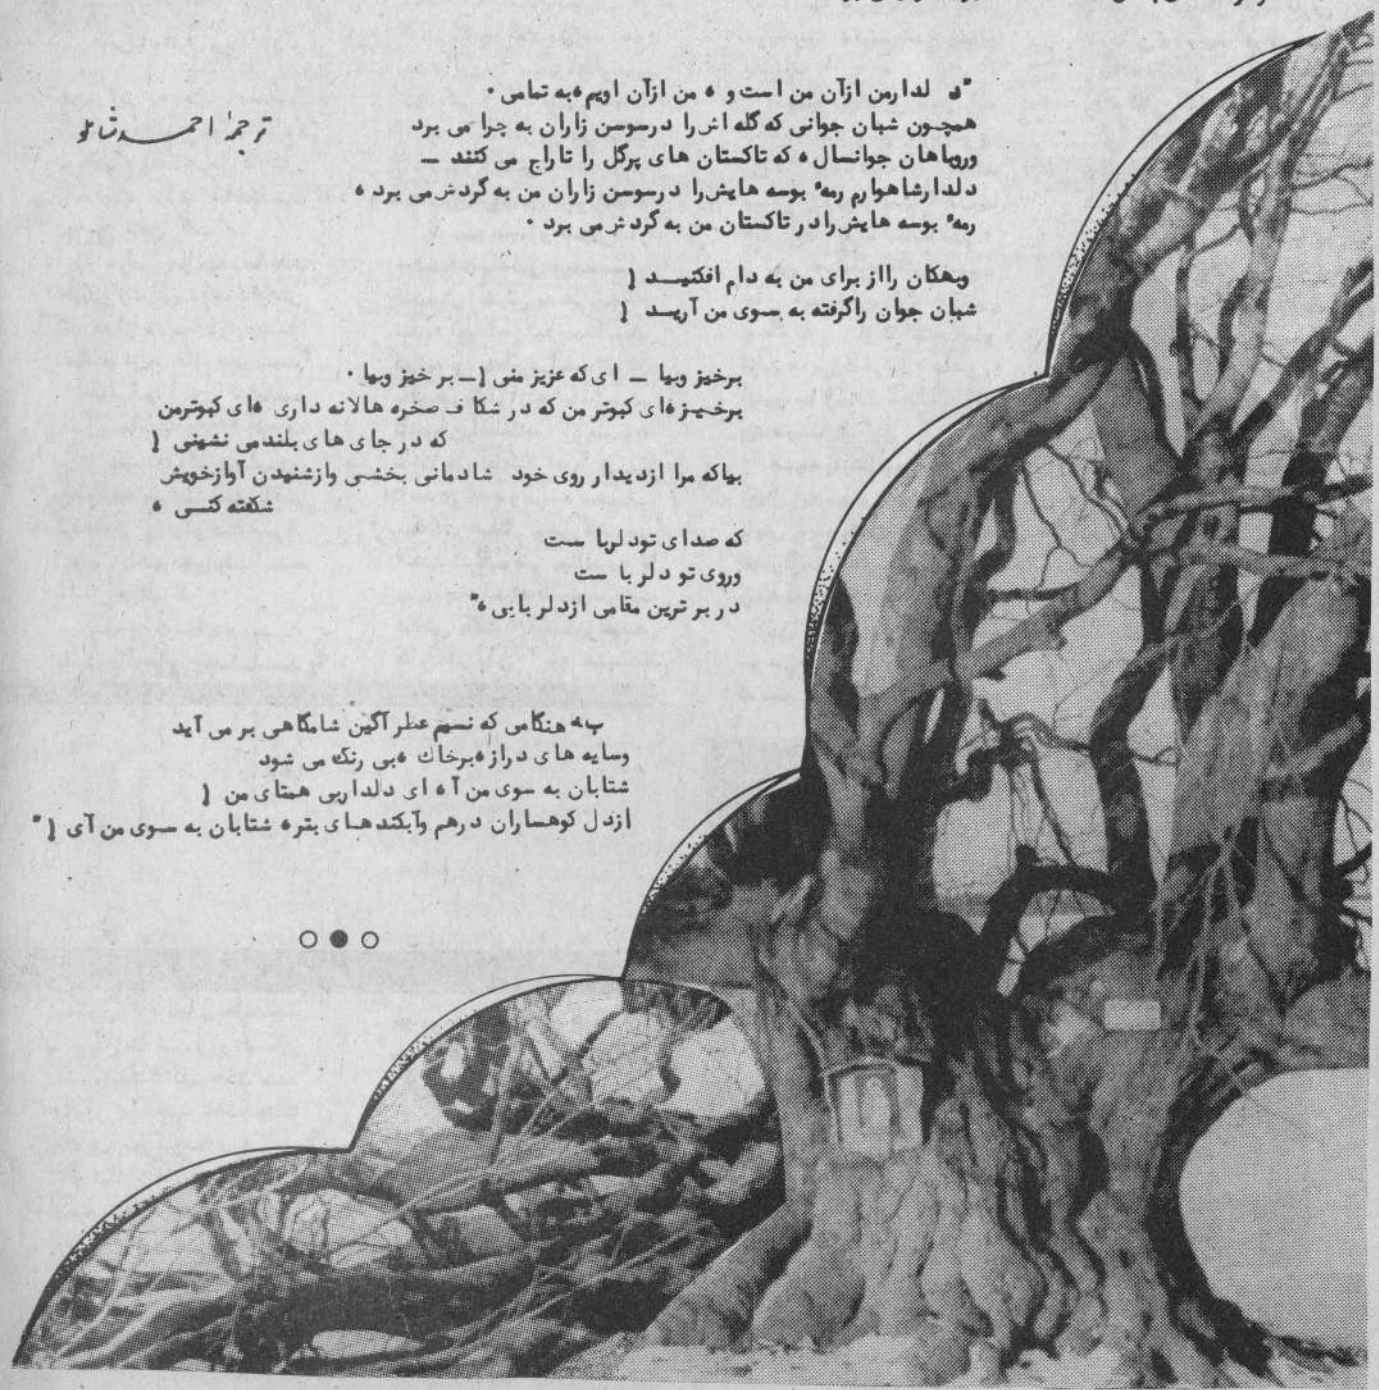 "دلدار من ازآن من است و ، من ازآن اویم ، به تمامی .
ترجمهٔ احمد شاملو
همچون شبان جوانی که گله اش را درسوسن زاران به چرا می برد
وروباهان جوانسال ، که تاکستان های پرگل را تاراج می کنند —
دلدارشاهوارم رمهٔ بوسه هایش را درسوسن زاران من به گردش می برد ،
رمهٔ بوسه هایش رادر تاکستان من به گردش می برد .
وبهکان رااز برای من به دام افکنید !
شبان جوان راگرفته به سوی من آرید !
برخیز وبیا — ای که عزیز منی ! — بر خیز وبیا .
برخیز ،ای کبوتر من که در شکاف صخره هالانه داری ،ای کبوترمن
که در جای های بلندمی نشینی !
بیاکه مرا ازدیدار روی خود شادمانی بخشی وازشنیدن آوازخویش
شکفته کنی ،
که صدای تودلربا ست
وروی تو دلربا ست
در بر ترین مقامی ازدلربایی ،"
به هنگامی که نسیم عطرآگین شامگاهی بر می آید
وسایه های دراز ،برخاك ،بی رنگ می شود
شتابان به سوی من آ ، ای دلداربی همتای من !
ازدل کوهساران درهم وآبکندهای بتر، شتابان به سوی من آی !"